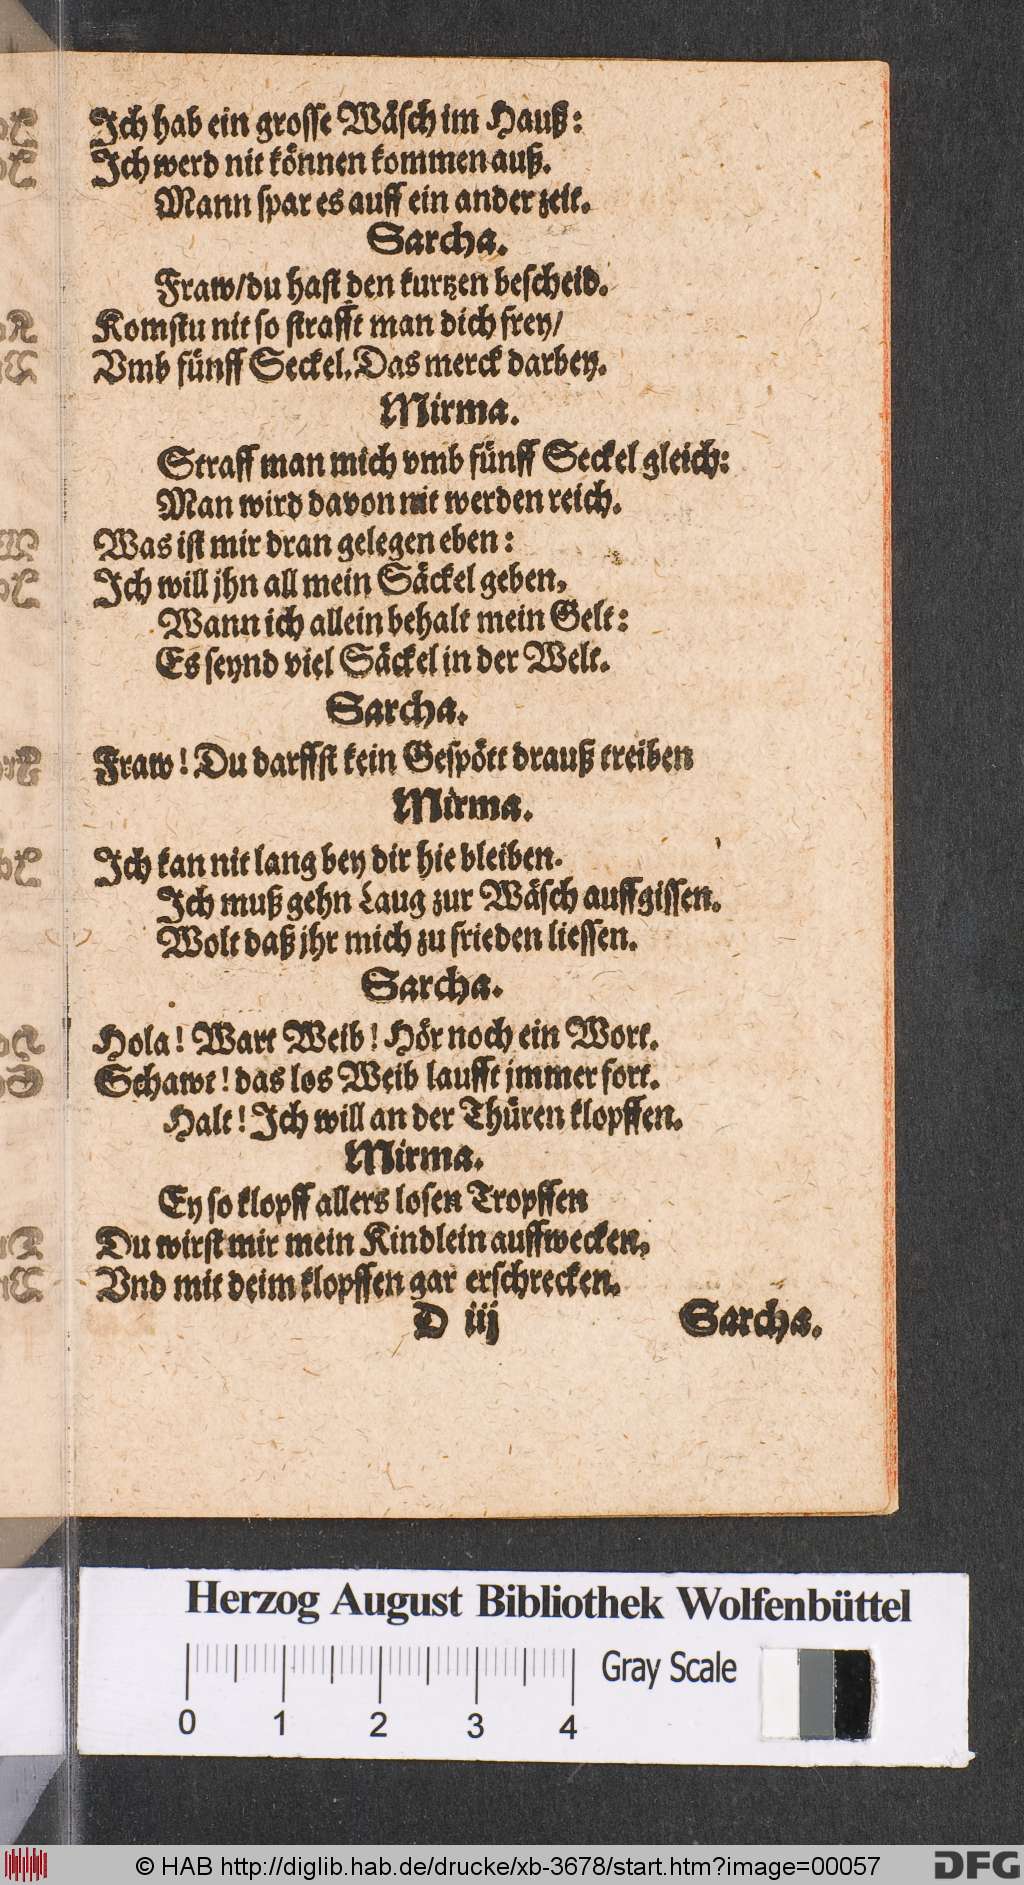 Ich hab ein grosse Wäsch im Hauß:
Ich werd nit können kommen auß.
Mann spar es auff ein ander zeit.
Sarcha.
Fraw/du hast den kurtzen bescheid.
Komstu nit so strafft man dich frey/
Vmb fünff Seckel. Das merck darbey.
Mirma.
Straff man mich vmb fünff Seckel gleich:
Man wird davon nit werden reich.
Was ist mir dran gelegen eben:
Ich will jhn all mein Säckel geben,
Wann ich allein behalt mein Gelt:
Es seynd viel Säckel in der Welt.
Sarcha.
Fraw! Du darffst kein Gespött drauß treiben
Mirma.
Ich kan nit lang bey dir hie bleiben.
Ich muß gehn Laug zur Wäsch auffgissen.
Wolt daß jhr mich zu frieden liessen.
Sarcha.
Hola! Wart Weib! Hör noch ein Wort.
Schawt! das los Weib laufft jmmer fort.
Halt! Ich will an der Thüren klopffen.
Mirma.
Ey so klopff allers losen Tropffen
Du wirst mir mein Kindlein auffwecken,
Vnd mit deim klopffen gar erschrecken.
D iij Sarcha.
Herzog August Bibliothek Wolfenbüttel
Gray Scale
0 1 2 3 4
© HAB http://diglib.hab.de/drucke/xb-3678/start.htm?image=00057
DFG